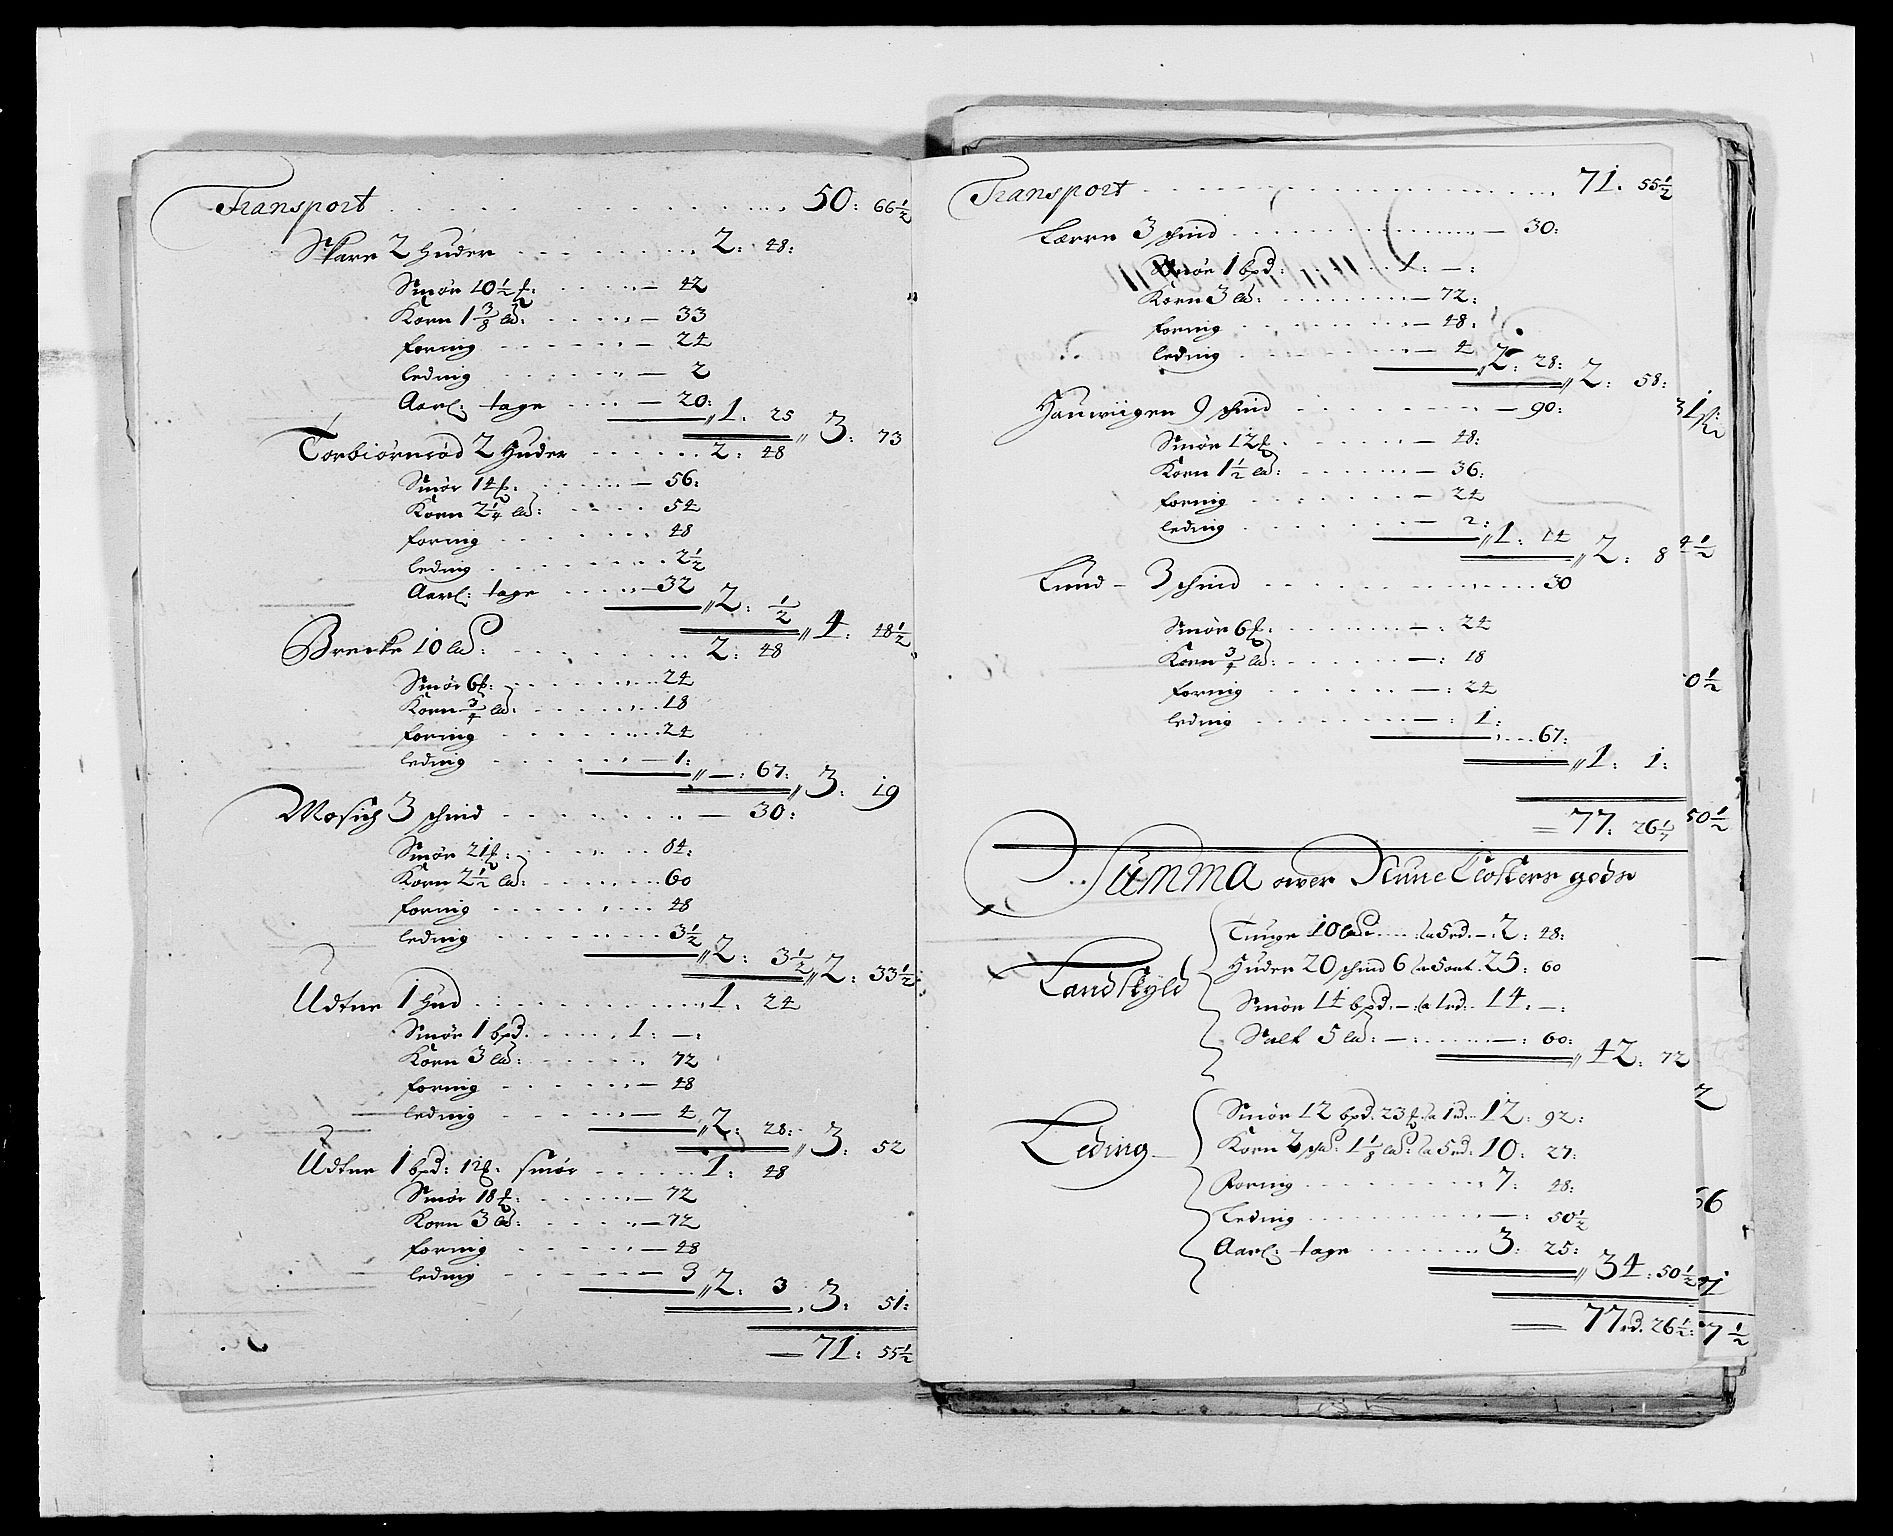 Transport . . . 50: 66½
Skare 2 Huder . . . 2: 48:
Smör 10½ . . . — 42
Korn 1 3/8 . . . — 33
foring . . . — 24
leding . . . — 2
Aarl: tage . . . — 20:
1: 25
3: 73
Torbiörnröd 2 Huder . . . 2: 48
Smör 14 . . . — 56:
Korn 2¼ . . . 54
foring . . . 48
leding . . . 2½
Aarl: tage . . . — 32
2: ½
4: 48½
Brecke 10 . . . 2: 48
Smör 6 . . . 24
Korn ¾ . . . 18
foring . . . 24
leding . . . — 1:
—: 67:
3: 19
3 schind . . . — 30:
Smör 21 . . . 84:
Korn 2½ . . . 60
foring . . . 48
leding . . . 3½
2: 3½
2: 33½
Udtne 1 Hud . . . 1: 24
Smör 1 bpd. . . . 1: —:
Korn 3 . . . 72
foring . . . — 48
leding . . . — 4
2: 28:
3: 52
Udtne 1 bpd: 12 smör . . . 1: 48
Smör 18 . . . — 72
Korn 3 . . . — 72
foring . . . — 48
leding . . . — 3
2: 3
3: 51:
— 71: 55½
Transport . . . 71. 55½
3 schind . . . — 30:
Smör 1 bpd: . . . 1: —:
Korn 3 . . . — 72:
foring . . . — 48:
leding . . . — 4
2: 28:
2: 58:
9 schind . . . — 90:
Smör 12 . . . — 48:
Korn 1½ . . . — 36:
foring . . . — 24
leding . . . — 2:
1: 14
2: 8
Lund — 3 schind . . . 30
Smör 6 . . . —: 24
Korn ¾ . . . —: 18
foring . . . —: 24
leding . . . —: 1:
67:
1: 1:
= 77: 26½
Summa over Closters gods
Landskyld
Tunge 10 . . . a 5 rd. — 2: 48:
Huder 20 schind 6 . . . 25: 60
Smör 14 bpd. —: a 1 rd. . . 14: —:
Salt 5 —: . . . —: 60:
42: 72
Leding
Smör 12 bpd. 23 a 1 rd. . . 12: 92:
Korn 2 1 1/8 a 5 rd: 10: 27:
Foring . . . 7: 48:
Leding . . . —: 50½
Aarl: tage . . . 3: 25:
34: 50½
= 77 rd. 26½: